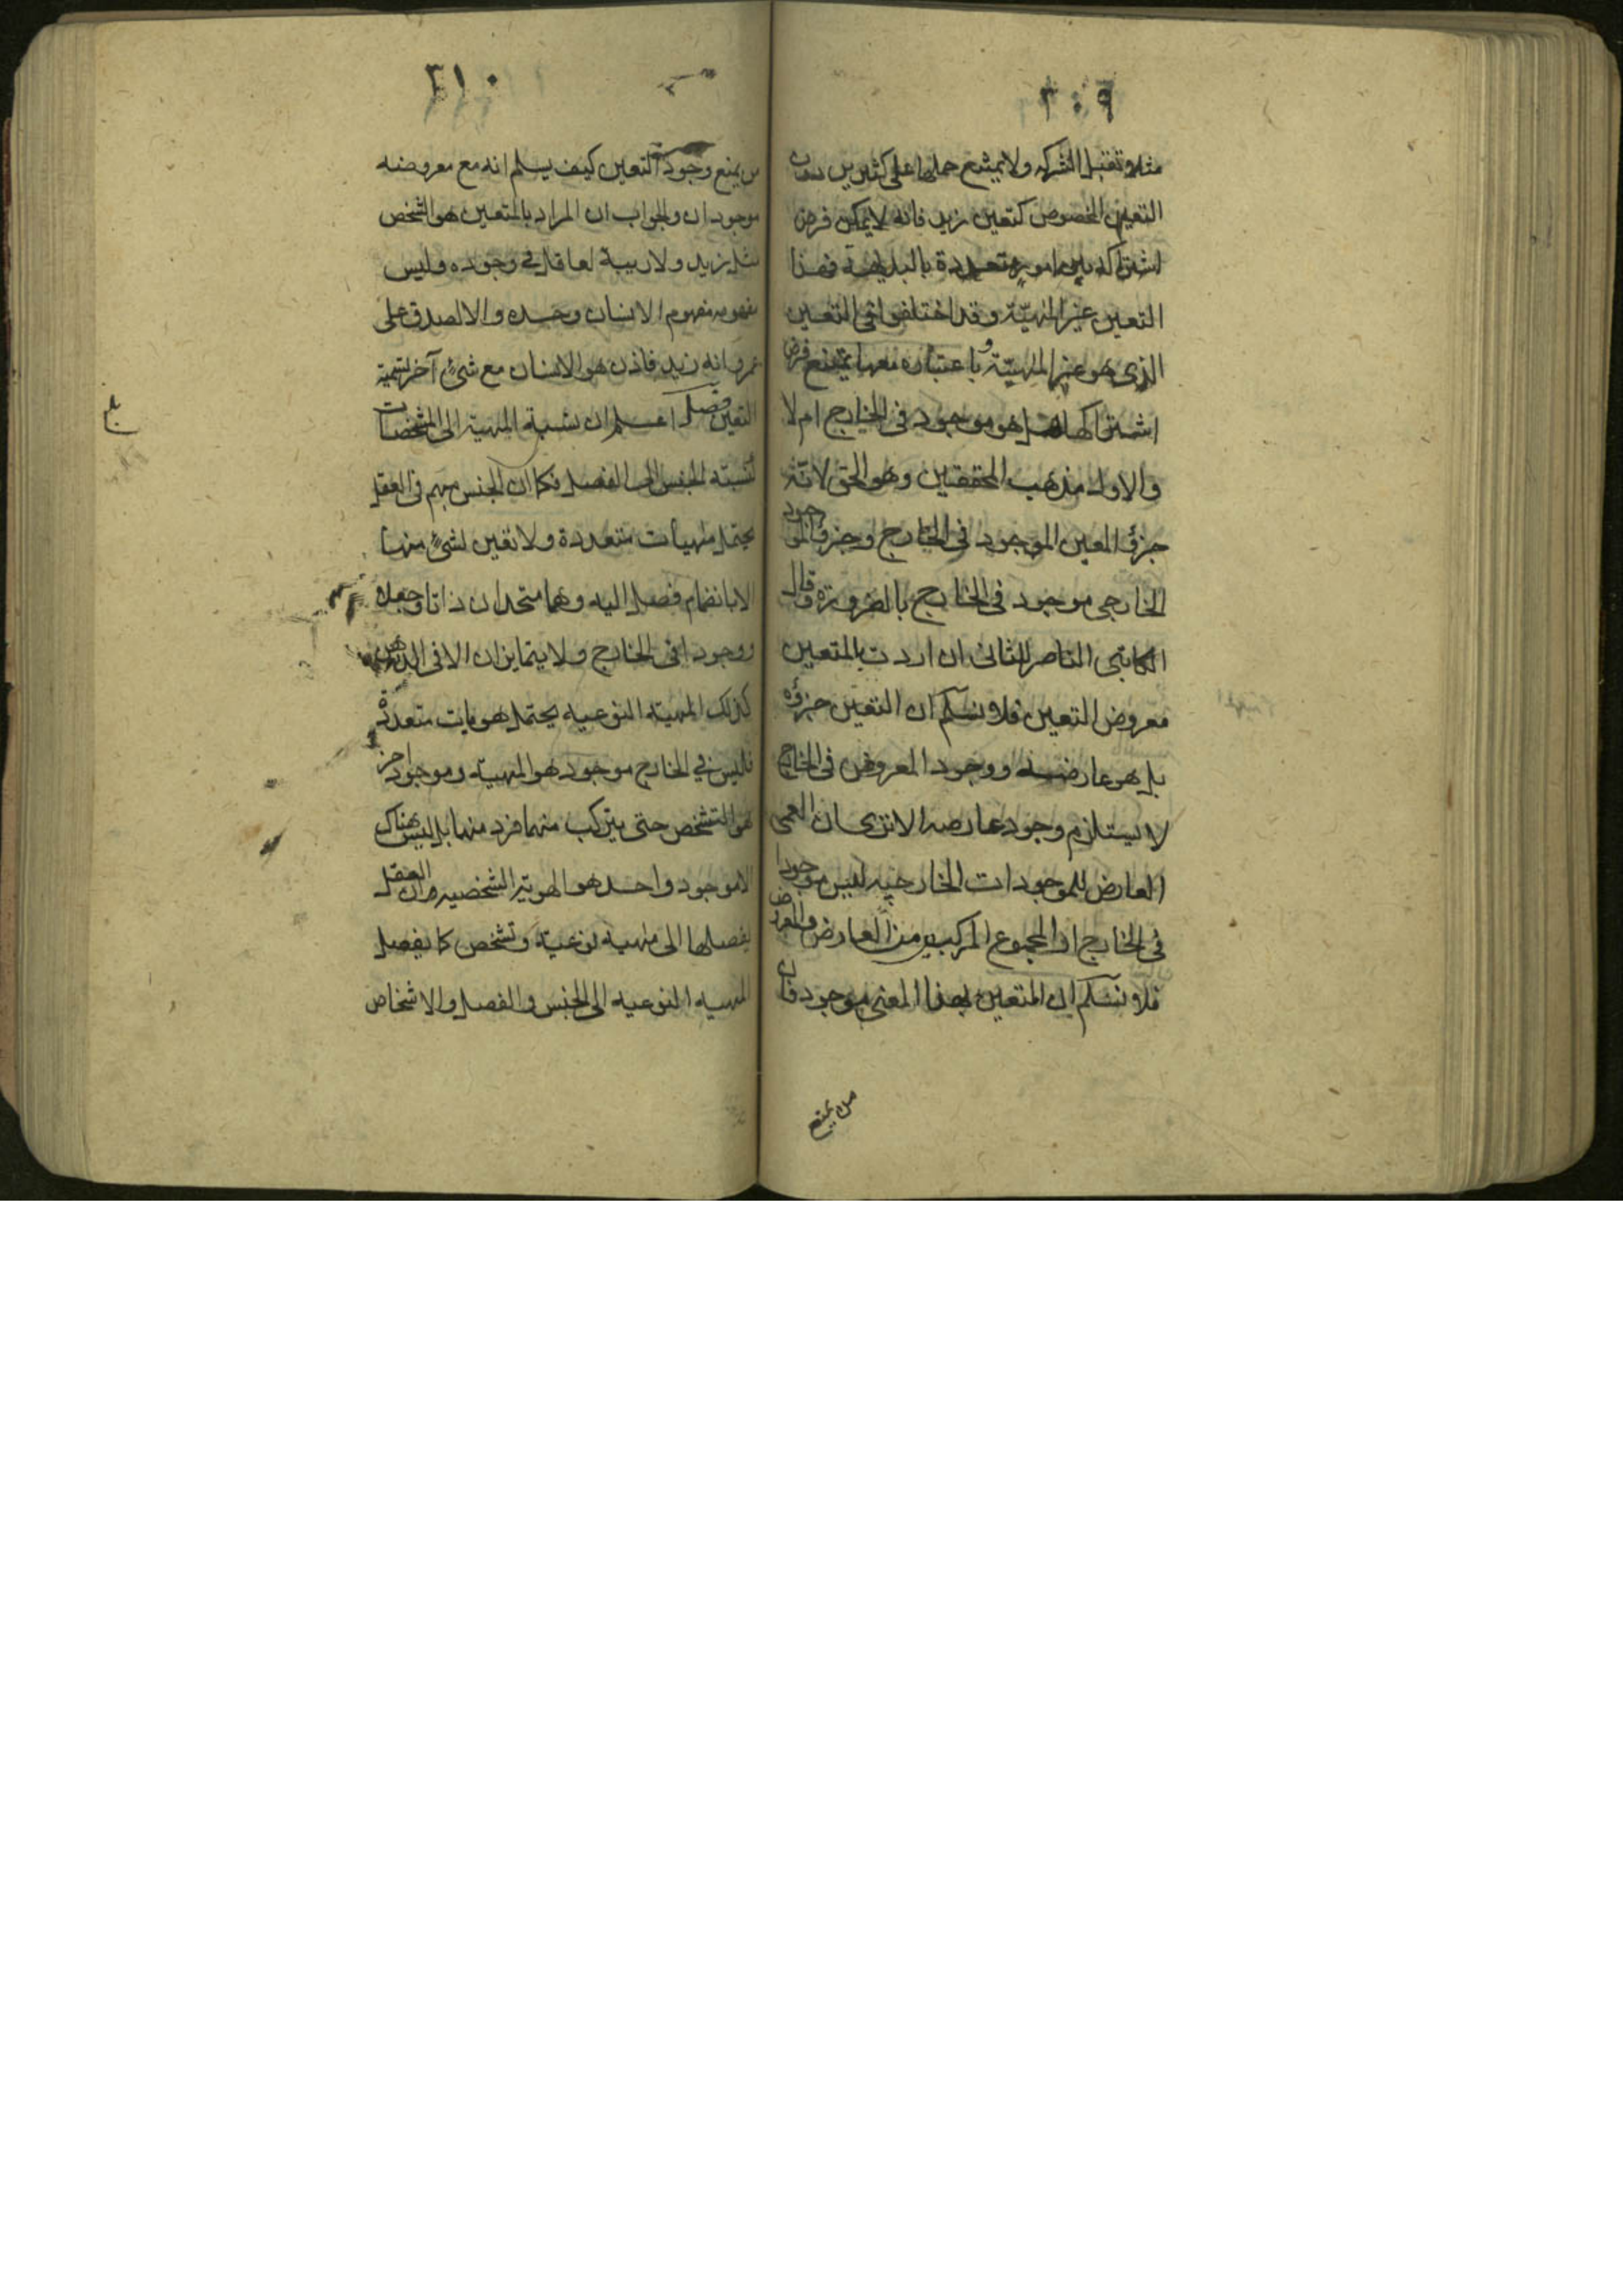 ٣٠٩
مثلا وتقبل الشركه ولا يمتنع حملها على كثيرين
التعين المخصوص كتعين زيد فانه لا يمكن فرض
اشتراكه بين امور متعددة بالبديهة فهذا
التعين غير المهيّة وقد اختلفوا فى التعين
الذى هو غير المهيّة و باعتباره معها يمتنع فرض
اشتراكها هل هو موجود فى الخارج ام لا
والاول مذهب المحققين وهو الحق لانّه
جزؤ المعين الموجود فى الخارج وجزؤ الموجود
الخارجى موجود فى الخارج بالضرورة وقال
الكاتبى الناصر للثانى ان اردت بالمتعين
معروض التعين فلا نسلّم ان التعين جزؤه
بل هو عارضه ووجود المعروض فى الخارج
لا يستلزم وجود عارضه الا ترى ان العمى
العارض للموجودات الخارجيه ليس موجودا
فى الخارج او المجموع المركب من العارض والمعروض
فلا نسلّم ان المتعين بهذا المعنى موجود فان
من يمنع
٣١٠
من يمنع وجود التعين كيف يسلم انه مع معروضه
موجودان والجواب ان المراد بالمتعين هو الشخص
مثل زيد ولا ريبة لعاقل فى وجوده وليس
مفهومه مفهوم الانسان وحده والا لصدق على
عمرو انه زيد فاذن هو الانسان مع شئ آخر نسميه
التعين فصل اعلم ان نسبة المهية الى المشخصات
كنسبة الجنس الى الفصل فكما ان الجنس مبهم فى العقل
يحتمل مهيات متعددة ولا تعين لشئ منها
الا بانضمام فصل اليه وهما متحدان ذاتا وجعلا
ووجودا فى الخارج ولا يتمايزان الا فى الذهن
كذلك المهية النوعيه يحتمل هويات متعددة
فليس فى الخارج موجود هو المهية وموجود اخر
هو التشخص حتى يتركب منهما فرد منها بل ليس هناك
الا موجود واحد هو الهوية الشخصيه وان العقل
يفصلها الى مهية نوعية وتشخص كما يفصل
المهيه النوعيه الى الجنس والفصل والاشخاص